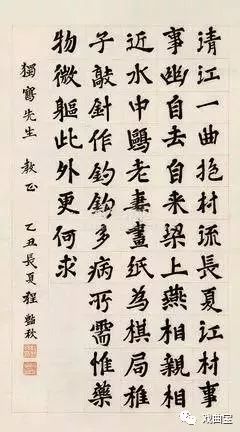 清江一曲抱村流長夏江村事
事幽自去自来梁上燕相親相
近水中鷗老妻畫紙為棋局稚
子敲針作釣鈎多病所需惟藥
物微軀此外更何求
獨鶴先生 教正 乙丑長夏程豔秋
戏曲宝